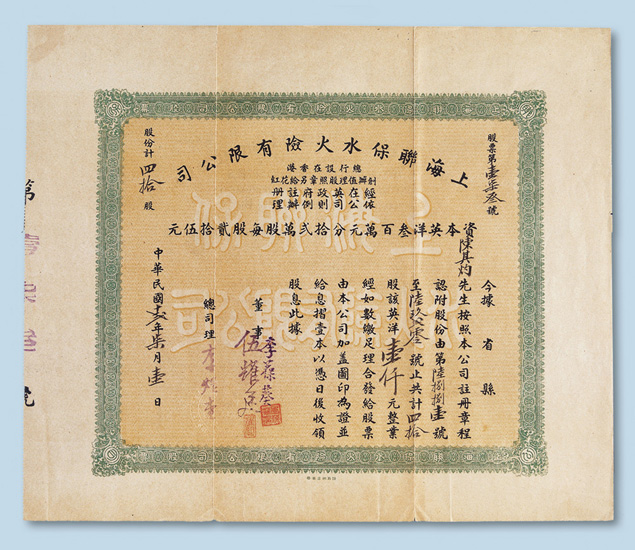 上海聯保水火險有限公司
股票第壹柒叁號
股份計四拾股
總行設在香港
創辦理股照章另給花紅
經在英政府註冊
依公司則例辦理
資本英洋叁百萬元分拾弍萬股每股貳拾伍元
今據 省 縣
陳其灼先生按照本公司註冊章程
認附股份由第陸捌捌壹號
至陸玖零號止共計四拾
股該英洋壹仟元整業
經如數繳足理合發給股票
由本公司加蓋圖印為證並
給息摺壹本以憑日後收領
股息此據
董事 李葆葵
伍耀
總司理 李煜堂
中華民國年柒月壹日
上海聯保
第壹柒叁號